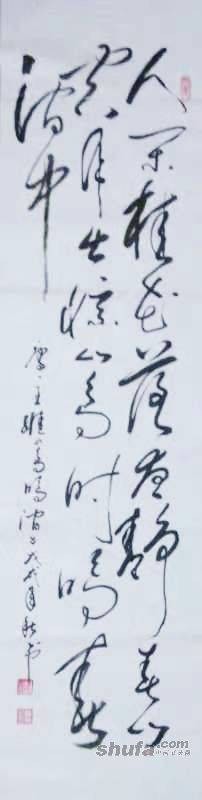 人闲桂花落夜静春山
空月出惊山鸟时鸣春
涧中
唐王維鸟鸣涧戊戌年秋书
shufa.com